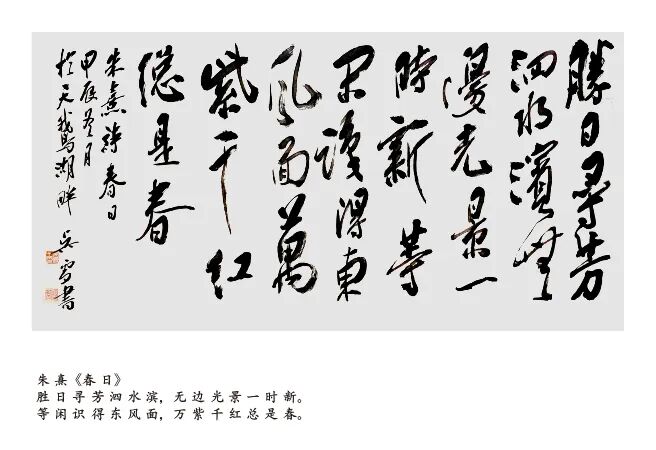 勝日尋芳
泗水濱無
邊光景一
時新等
閑識得東
風面萬
紫千紅
總是春
朱熹詩春日
甲辰月
於天鵝湖畔
吴書
朱熹《春日》
胜日寻芳泗水滨，无边光景一时新。
等闲识得东风面，万紫千红总是春。